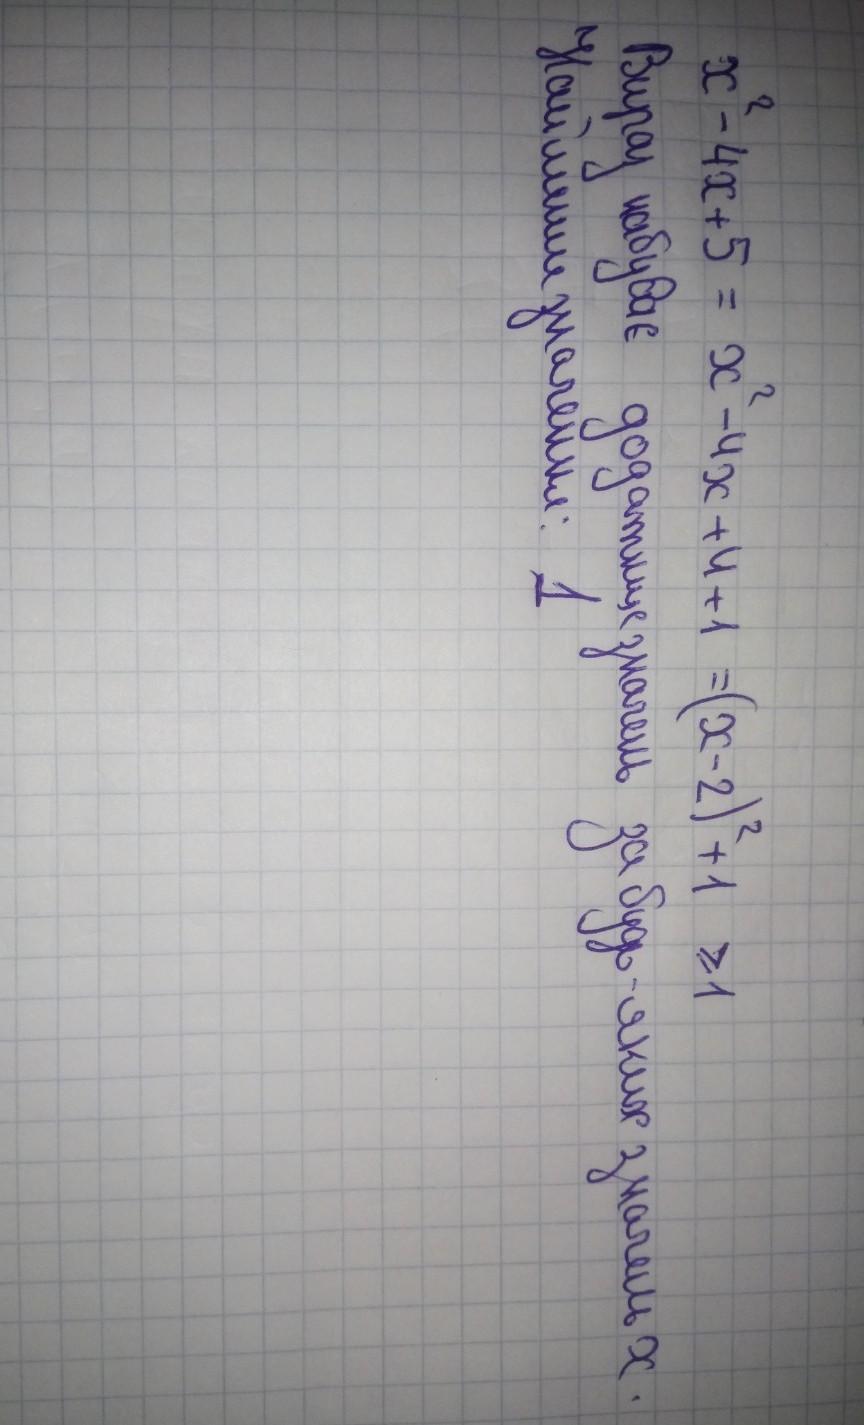 x² - 4x + 5 = x² - 4x + 4 + 1 = (x - 2)² + 1 ⩾ 1
Вираз набуває додатнує значень за будь-яких значень x.
Найменше значення: 1